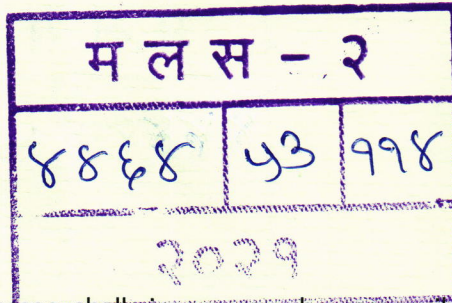 म ल स - २
४४६४ ५३ ११४
२०२१